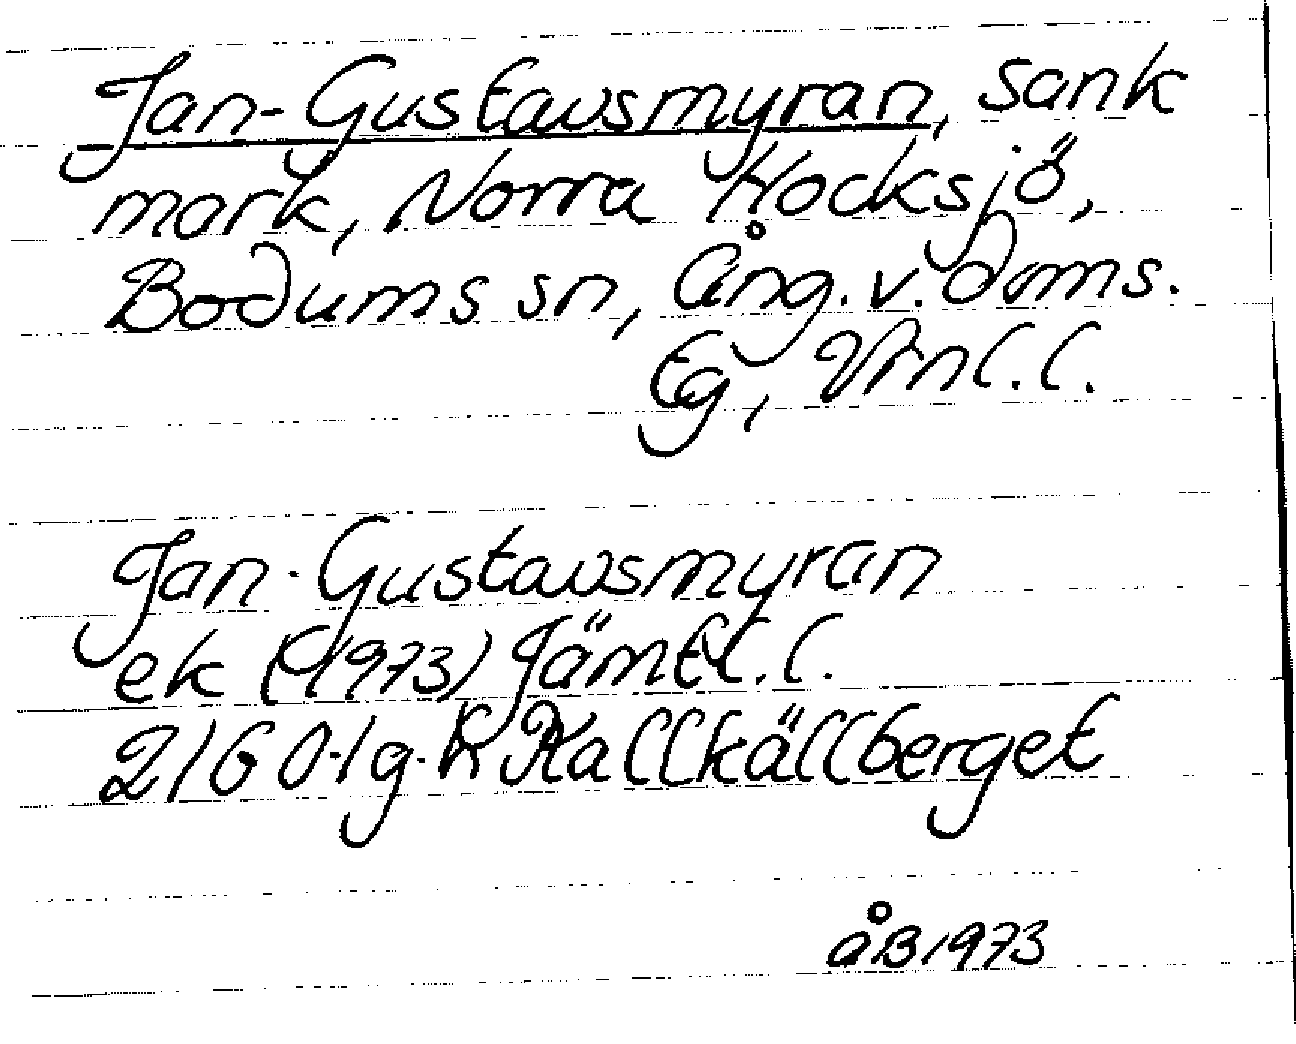 Jan-Gustavsmyran, sank
mark, Norra Hocksjö,
Bodums sn, Ång. v. doms.
Eg, Vrnl. l.
Jan-Gustavsmyran
ek (1973) Jämtl. l.
2160-1g-h Kallkällberget
åB 1973